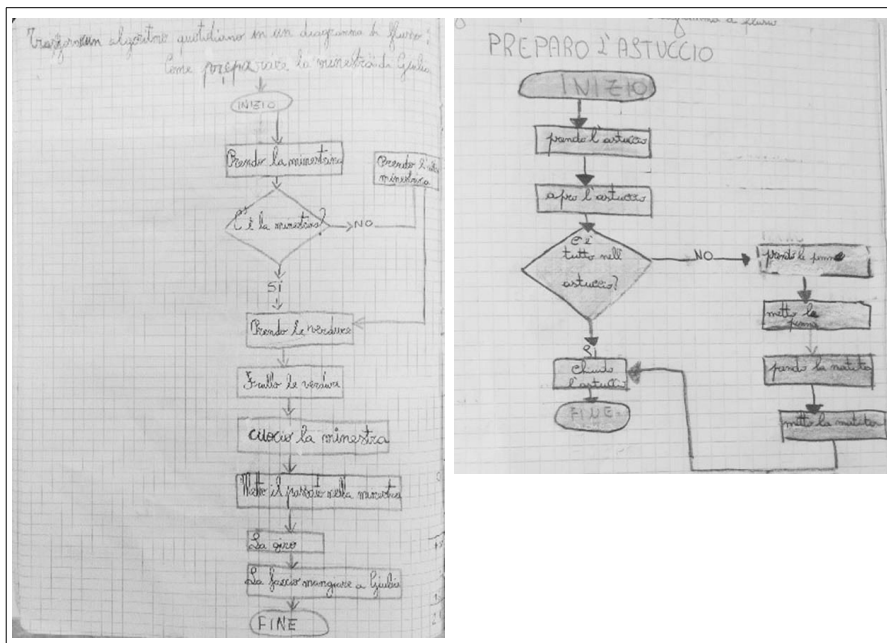 Trasformo un algoritmo quotidiano in un diagramma di flusso:
Come preparare la minestra di Giulia
INIZIO
Prendo la minestrina
Prendo l'altra
minestrina
C'è la minestrina?
NO
SÌ
Prendo le verdure
Frullo le verdure
cuocio la minestra
Metto il passato nella minestra
La giro
La faccio mangiare a Giulia
FINE
diagramma a flusso
PREPARO L'ASTUCCIO
INIZIO
prendo l'astuccio
apro l'astuccio
C'è
tutto nell'
astuccio?
NO
prendo la penna
metto la
penna
prendo la matita
metto la matita
SÌ
Chiudo
l'astuccio
FINE